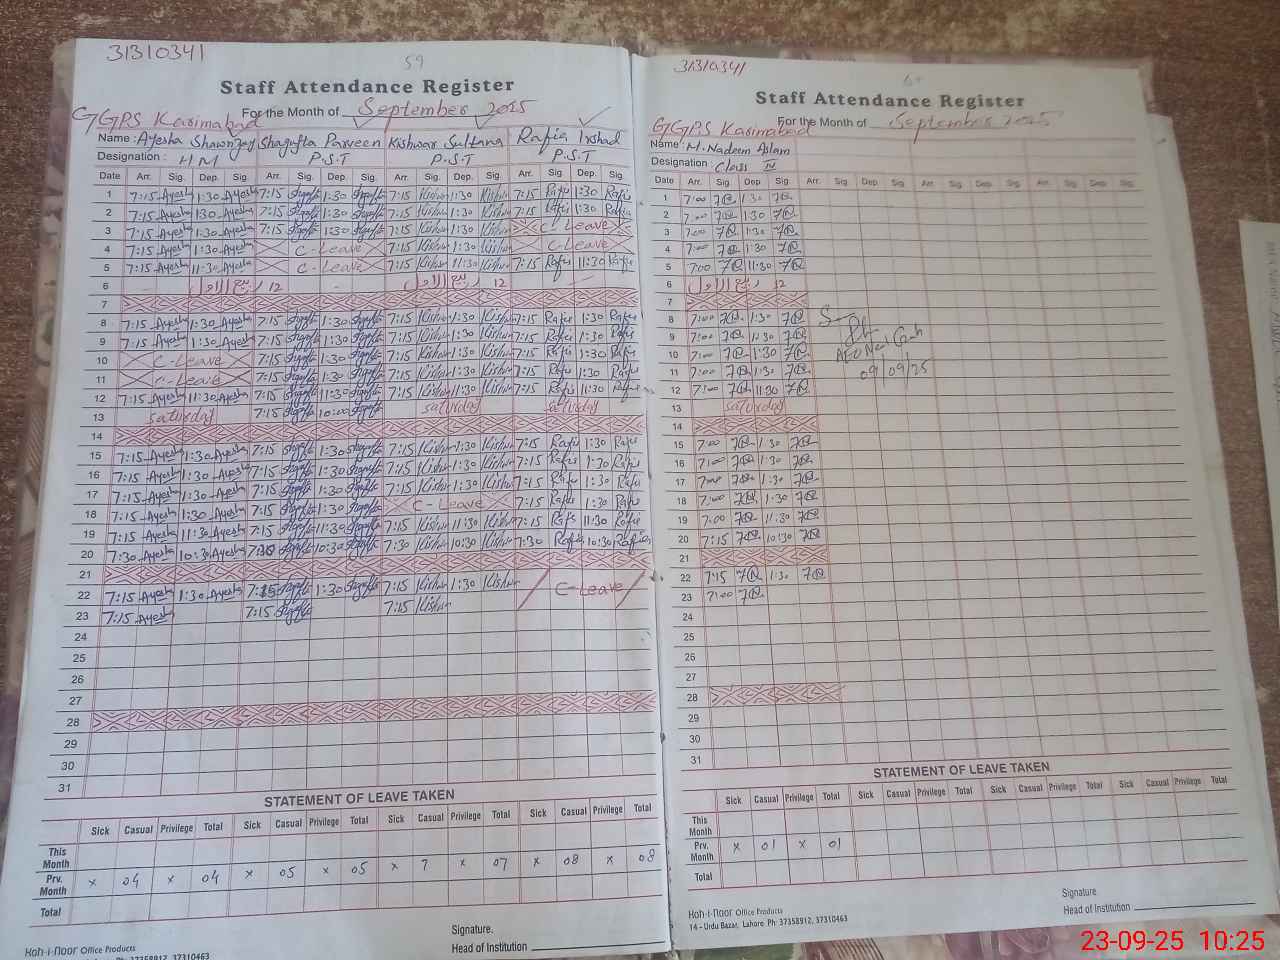 31310341
59
Staff Attendance Register
For the Month of September 2025
GGPS Karimabad
Name: Ayesha Shawnzay Shagufta Parveen Kishwar Sultana Rafia Irshad
Designation: HM P.S.T P.S.T P.S.T
Date Arr. Sig. Dep. Sig. Arr. Sig. Dep. Sig. Arr. Sig. Dep. Sig. Arr. Sig. Dep. Sig.
1 7:15 Ayesha 1:30 Ayesha 7:15 1:30 7:15 Kishwr 1:30 Kishwr 7:15 Rafia 1:30 Rafia
2 7:15 Ayesha 1:30 Ayesha 7:15 1:30 7:15 Kishwr 1:30 Kishwr 7:15 Rafia 1:30 Rafia
3 7:15 Ayesha 1:30 Ayesha 7:15 1:30 7:15 Kishwr 1:30 Kishwr C-Leave
4 7:15 Ayesha 1:30 Ayesha C-Leave 7:15 Kishwr 1:30 Kishwr C-Leave
5 7:15 Ayesha 11:30 Ayesha C-Leave 7:15 Kishwr 11:30 Kishwr 7:15 Rafia 11:30 Rafia
6 12 ربیع الاول 12 ربیع الاول
7
8 7:15 Ayesha 1:30 Ayesha 7:15 1:30 7:15 Kishwr 1:30 Kishwr 7:15 Rafia 1:30 Rafia
9 7:15 Ayesha 1:30 Ayesha 7:15 1:30 7:15 Kishwr 1:30 Kishwr 7:15 Rafia 1:30 Rafia
10 C-Leave 7:15 1:30 7:15 Kishwr 1:30 Kishwr 7:15 Rafia 1:30 Rafia
11 C-Leave 7:15 1:30 7:15 Kishwr 1:30 Kishwr 7:15 Rafia 1:30 Rafia
12 7:15 Ayesha 11:30 Ayesha 7:15 11:30 7:15 Kishwr 11:30 Kishwr 7:15 Rafia 11:30 Rafia
13 Saturday 7:15 10:00 Saturday Saturday
14
15 7:15 Ayesha 1:30 Ayesha 7:15 1:30 7:15 Kishwr 1:30 Kishwr 7:15 Rafia 1:30 Rafia
16 7:15 Ayesha 1:30 Ayesha 7:15 1:30 7:15 Kishwr 1:30 Kishwr 7:15 Rafia 1:30 Rafia
17 7:15 Ayesha 1:30 Ayesha 7:15 1:30 7:15 Kishwr 1:30 Kishwr 7:15 Rafia 1:30 Rafia
18 7:15 Ayesha 1:30 Ayesha 7:15 1:30 C-Leave 7:15 Rafia 1:30 Rafia
19 7:15 Ayesha 11:30 Ayesha 7:15 11:30 7:15 Kishwr 11:30 Kishwr 7:15 Rafia 11:30 Rafia
20 7:30 Ayesha 10:30 Ayesha 7:30 10:30 7:30 Kishwr 10:30 Kishwr 7:30 Rafia 10:30 Rafia
21
22 7:15 Ayesha 1:30 Ayesha 7:15 1:30 7:15 Kishwr 1:30 Kishwr C-Leave
23 7:15 Ayesha 7:15 7:15 Kishwr
24
25
26
27
28
29
30
31
STATEMENT OF LEAVE TAKEN
Sick Casual Privilege Total Sick Casual Privilege Total Sick Casual Privilege Total Sick Casual Privilege Total
This Month
Prv. Month x 04 x 04 x 05 x 05 x 7 x 07 x 08 x 08
Total
Signature.
Head of Institution
Koh-i-Noor Office Products
Ph: 37358912, 37310463
31310341
Staff Attendance Register
For the Month of September 2025
GGPS Karimabad
Name: M. Nadeem Aslam
Designation: Class IV
Date Arr. Sig. Dep. Sig. Arr. Sig. Dep. Sig. Arr. Sig. Dep. Sig. Arr. Sig. Dep. Sig.
1 7:00 1:30
2 7:00 1:30
3 7:00 1:30
4 7:00 1:30
5 7:00 11:30
6 12 ربیع الاول
7
8 7:00 1:30
9 7:00 1:30
10 7:00 1:30
11 7:00 1:30
12 7:00 11:30
09/09/25
13 Saturday
14
15 7:00 1:30
16 7:00 1:30
17 7:00 1:30
18 7:00 1:30
19 7:00 11:30
20 7:15 10:30
21
22 7:15 1:30
23 7:00
24
25
26
27
28
29
30
31
STATEMENT OF LEAVE TAKEN
Sick Casual Privilege Total Sick Casual Privilege Total Sick Casual Privilege Total Sick Casual Privilege Total
This Month
Prv. Month x 01 x 01
Total
Signature.
Head of Institution
Koh-i-Noor Office Products
14 - Urdu Bazar, Lahore. Ph: 37358912, 37310463
23-09-25 10:25